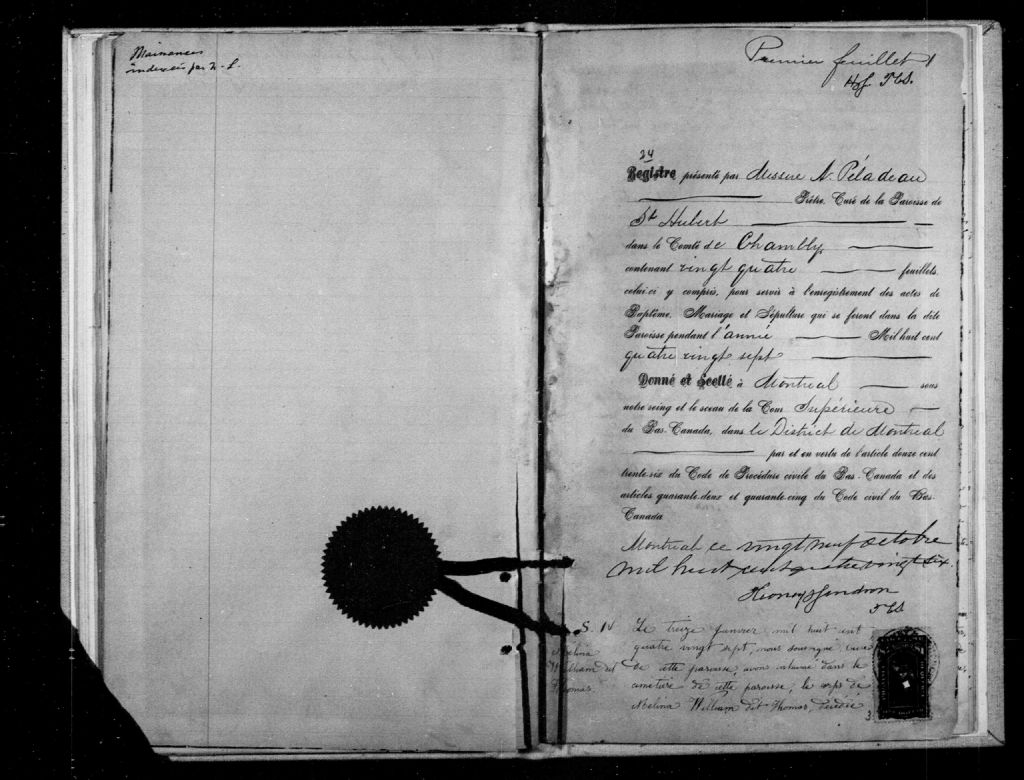 Premier feuillet
24
Registre présenté par Messire N. Péladeau
Prêtre, Curé de la Paroisse de
St Hubert
dans le Comté de Chambly
contenant vingt quatre feuillets
celui-ci y compris, pour servir à l'enregistrement des actes de
Baptême, Mariage et Sépulture qui se feront dans la dite
Paroisse pendant l'année Mil huit cent
quatre vingt sept
Donné et Scellé à Montreal sous
notre seing et le sceau de la Cour Supérieure
du Bas-Canada, dans le District de Montreal
par et en vertu de l'article douze cent
trente-six du Code de Procédure civile du Bas-Canada et des
articles quarante-deux et quarante-cinq du Code civil du Bas-
Canada
Montreal ce vingt neuf octobre
mil huit cent quatre vingt six.
S. 1
Melina
William dit
Thomas
Le treize janvier mil huit cent
quatre vingt sept, nous soussigné, curé
de cette paroisse, avons inhumé dans le
cimetière de cette paroisse, le corps de
Melina William dit Thomas, décédée